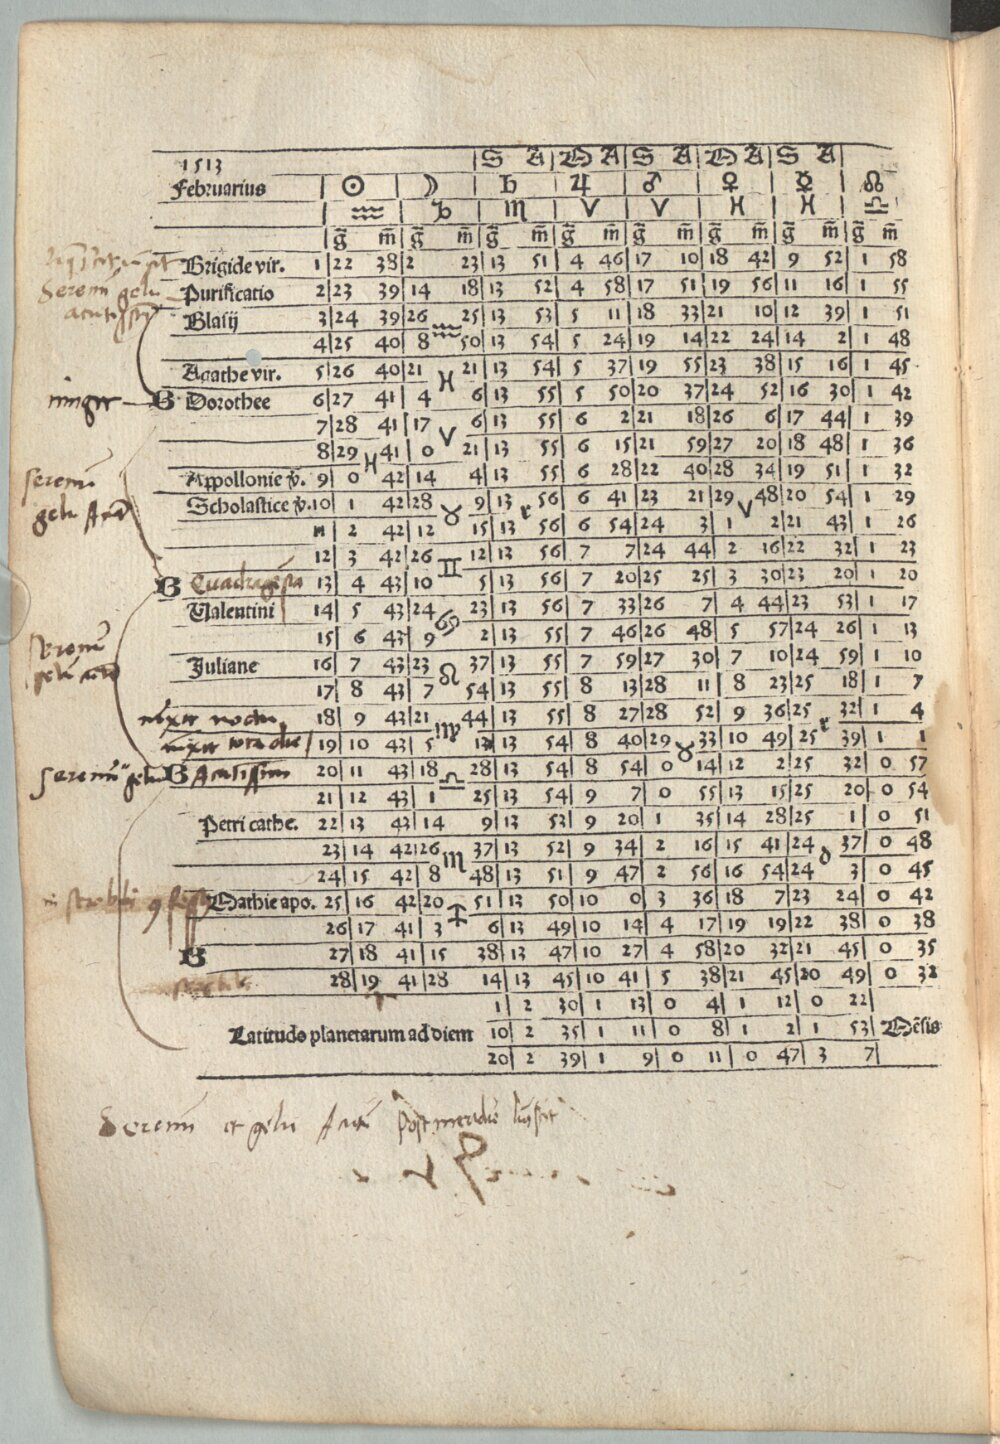 1513 S A M A S A M A S A
Februarius ☉ ☽ ♄ ♃ ♂ ♀ ☿ ☊
♒ ♑ ♏ ♈ ♈ ♓ ♓ ♎
g̃ m̃ g̃ m̃ g̃ m̃ g̃ m̃ g̃ m̃ g̃ m̃ g̃ m̃ g̃ m̃
Brigide vir. 1 22 38 2 23 13 51 4 46 17 10 18 42 9 52 1 58
Purificatio 2 23 39 14 18 13 52 4 58 17 51 19 56 11 16 1 55
Serenũ gelu
Blasij 3 24 39 26 25 13 53 5 11 18 33 21 10 12 39 1 51
4 25 40 8 ♒ 50 13 54 5 24 19 14 22 24 14 2 1 48
Agathe vir. 5 26 40 21 21 13 54 5 37 19 55 23 38 15 16 1 45
ningit B Dorothee 6 27 41 4 ♓ 6 13 55 5 50 20 37 24 52 16 30 1 42
7 28 41 17 6 13 55 6 2 21 18 26 6 17 44 1 39
8 29 41 0 ♈ 21 13 55 6 15 21 59 27 20 18 48 1 36
Appollonie v̄. 9 0 ♓ 42 14 4 13 55 6 28 22 40 28 34 19 51 1 32
serenũ
Scholastice v̄. 10 1 42 28 ♉ 9 13 r 56 6 41 23 21 29 ♈ 48 20 54 1 29
gelu
11 2 42 12 15 13 56 6 54 24 3 1 2 21 43 1 26
12 3 42 26 ♊ 12 13 56 7 7 24 44 2 16 22 32 1 23
B Quadragesia 13 4 43 10 5 13 56 7 20 25 25 3 30 23 20 1 20
Valentini 14 5 43 24 23 13 56 7 33 26 7 4 44 23 53 1 17
15 6 43 9 ♋ 2 13 55 7 46 26 48 5 57 24 26 1 13
Juliane 16 7 43 23 37 13 55 7 59 27 30 7 10 24 59 1 10
17 8 43 7 ♌ 54 13 55 8 13 28 11 8 23 25 18 1 7
18 9 43 21 44 13 55 8 27 28 52 9 36 25 r 32 1 4
19 10 43 5 ♍ 13 54 8 40 29 ♉ 33 10 49 25 39 1 1
serenũ gelu B Acutissim 20 11 43 18 ♎ 28 13 54 8 54 0 14 12 2 25 32 0 57
21 12 43 1 25 13 54 9 7 0 55 13 15 25 20 0 54
Petri cathe. 22 13 43 14 9 13 53 9 20 1 35 14 28 25 1 0 51
23 14 42 26 ♏ 37 13 52 9 34 2 16 15 41 24 d 37 0 48
24 15 42 8 48 13 51 9 47 2 56 16 54 24 3 0 45
Mathie apo. 25 16 42 20 51 13 50 10 0 3 36 18 7 23 24 0 42
26 17 41 3 ♐ 6 13 49 10 14 4 17 19 19 22 38 0 38
B 27 18 41 15 38 13 47 10 27 4 58 20 32 21 45 0 35
28 19 41 28 14 13 45 10 41 5 38 21 45 20 49 0 32
1 2 30 1 13 0 4 1 12 0 22
Latitudo planetarum ad diem 10 2 35 1 11 0 8 1 2 1 53 Mẽsis
20 2 39 1 9 0 11 0 47 3 7
Serenũ et gelu post meridiẽ